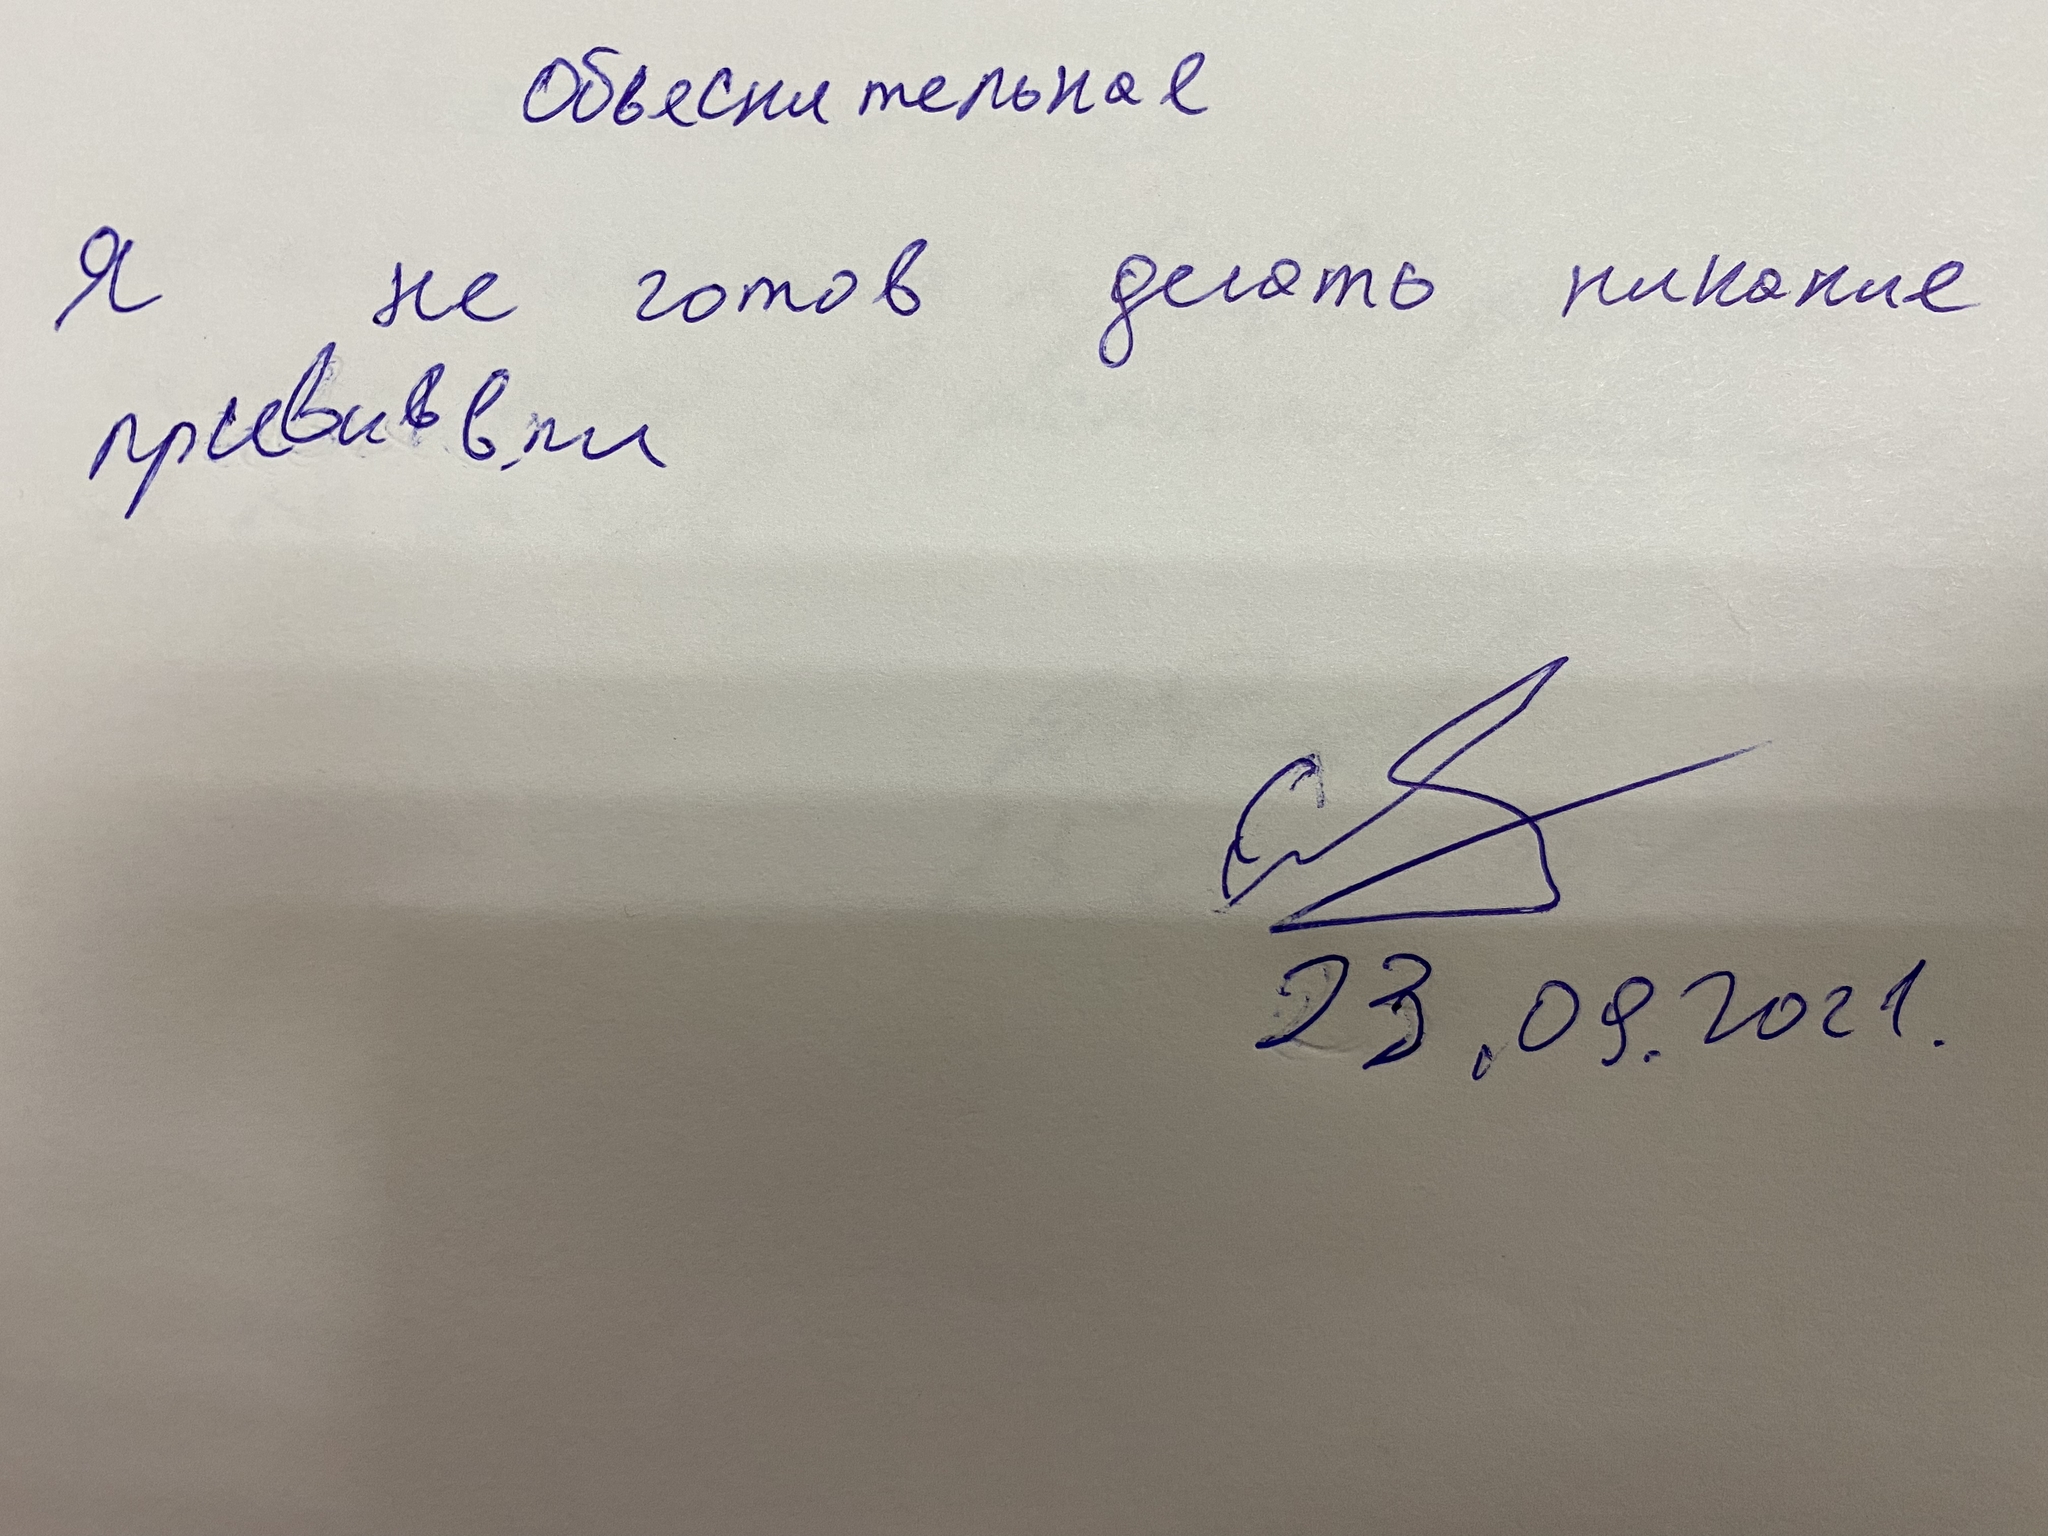 Обьеснительное
Я не готов делать никакие
приевививки
23.09.2021.